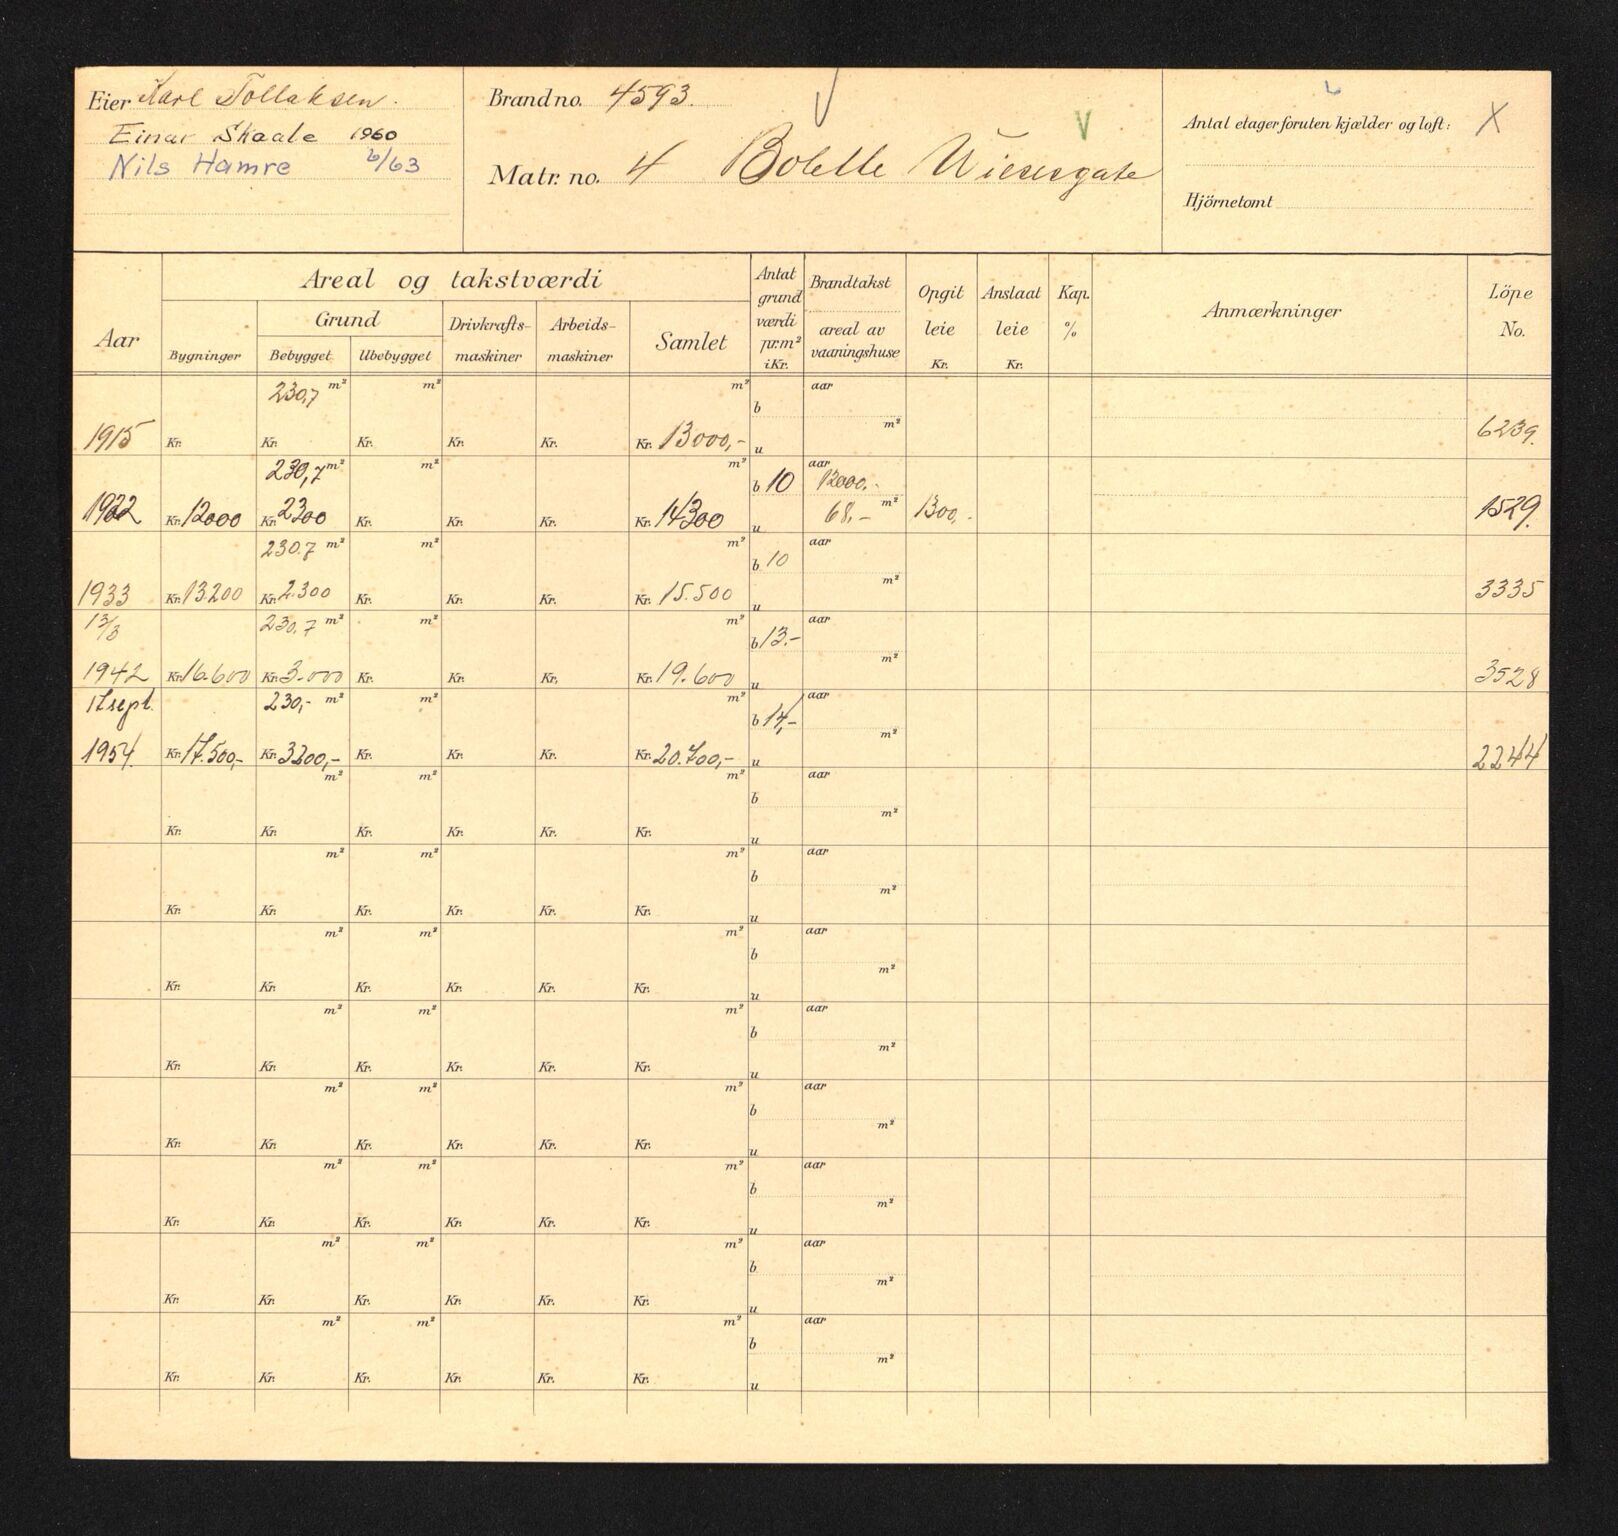 Eier Karl Tollaksen.
Einar Skaale 1960
Nils Hamre 6/63
Brand no. 4593.
Matr. no. 4 Bolette Wiesesgate
Antal etager foruten kjælder og loft: X
Hjörnetomt
Aar
Areal og takstværdi
Bygninger
Grund
Bebygget
Ubebygget
Drivkrafts-
maskiner
Arbeids-
maskiner
Samlet
Antat
grund
værdi
pr.m²
i Kr.
Brandtakst
areal av
vaaningshuse
Opgit
leie
Kr.
Anslaat
leie
Kr.
Kap.
%
Anmærkninger
Löpe
No.
230,7 m² m² m² aar
b
m²
1915 Kr. Kr. Kr. Kr. Kr. Kr. 13000,- u 6239.
230,7 m² m² m² aar
b 10 12000.-
1922 Kr. 12000 Kr. 2300 Kr. Kr. Kr. Kr. 14300 u 68,- m² 1300,- 1529.
230.7 m² m² m² aar
b 10
m²
1933 Kr. 13200 Kr. 2.300 Kr. Kr. Kr. Kr. 15.500 u 3335
13/3 230,7 m² m² m² aar
b 13.-
m²
1942 Kr. 16.600 Kr. 3.000 Kr. Kr. Kr. Kr. 19.600 u 3528
17 sept. 230,- m² m² m² aar
b 14,-
m²
1954. Kr. 17.500,- Kr. 3200,- Kr. Kr. Kr. Kr. 20.700,- u 2244
m² m² m² aar
b
m²
Kr. Kr. Kr. Kr. Kr. Kr. u
m² m² m² aar
b
m²
Kr. Kr. Kr. Kr. Kr. Kr. u
m² m² m² aar
b
m²
Kr. Kr. Kr. Kr. Kr. Kr. u
m² m² m² aar
b
m²
Kr. Kr. Kr. Kr. Kr. Kr. u
m² m² m² aar
b
m²
Kr. Kr. Kr. Kr. Kr. Kr. u
m² m² m² aar
b
m²
Kr. Kr. Kr. Kr. Kr. Kr. u
m² m² m² aar
b
m²
Kr. Kr. Kr. Kr. Kr. Kr. u
m² m² m² aar
b
m²
Kr. Kr. Kr. Kr. Kr. Kr. u